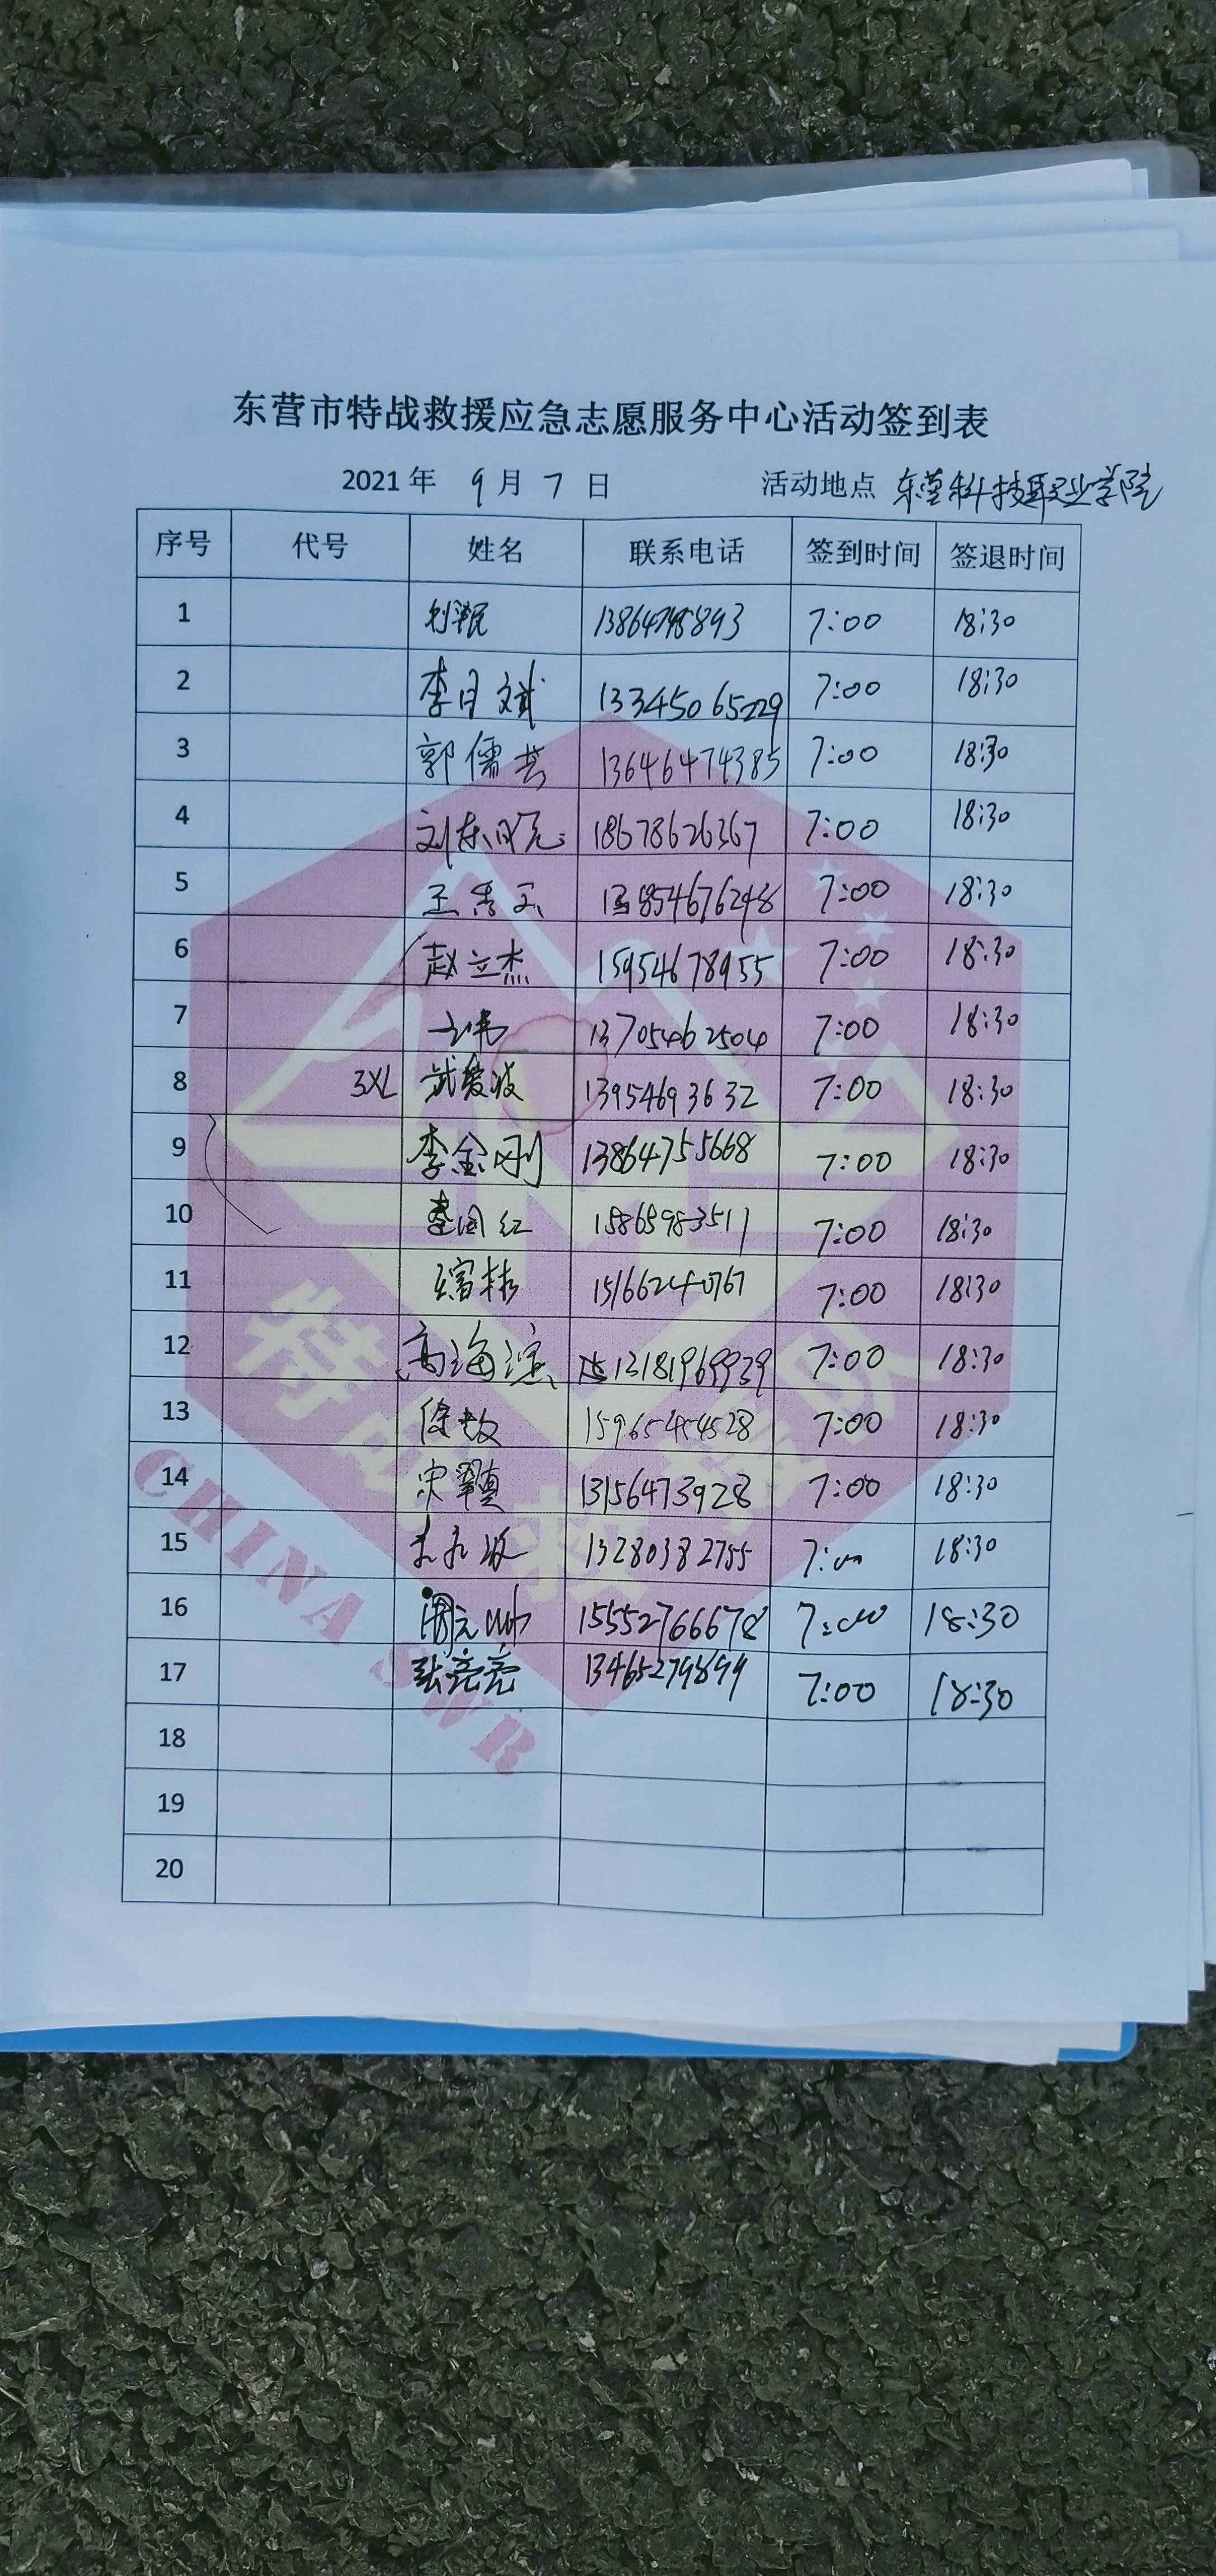 东营市特战救援应急志愿服务中心活动签到表
2021 年 9 月 7 日 活动地点 东营科技职业学院
序号 代号 姓名 联系电话 签到时间 签退时间
1 7:00 18:30
2 李月斌 13345065229 7:00 18:30
3 郭儒芸 13646474385 7:00 18:30
4 刘东晓 18678626367 7:00 18:30
5 王秀玉 13854676248 7:00 18:30
6 赵立杰 15954678955 7:00 18:30
7 13705462504 7:00 18:30
8 3XL 武爱波 13954693632 7:00 18:30
9 李金刚 13864755668 7:00 18:30
10 李国红 15865983511 7:00 18:30
11 15166240767 7:00 18:30
12 高海滨 13181969939 7:00 18:30
13 徐敏 15965454528 7:00 18:30
14 13156473928 7:00 18:30
15 13280382755 7:00 18:30
16 周元帅 15552766678 7:00 18:30
17 张亮亮 13465279899 7:00 18:30
18
19
20
CHINA SWR